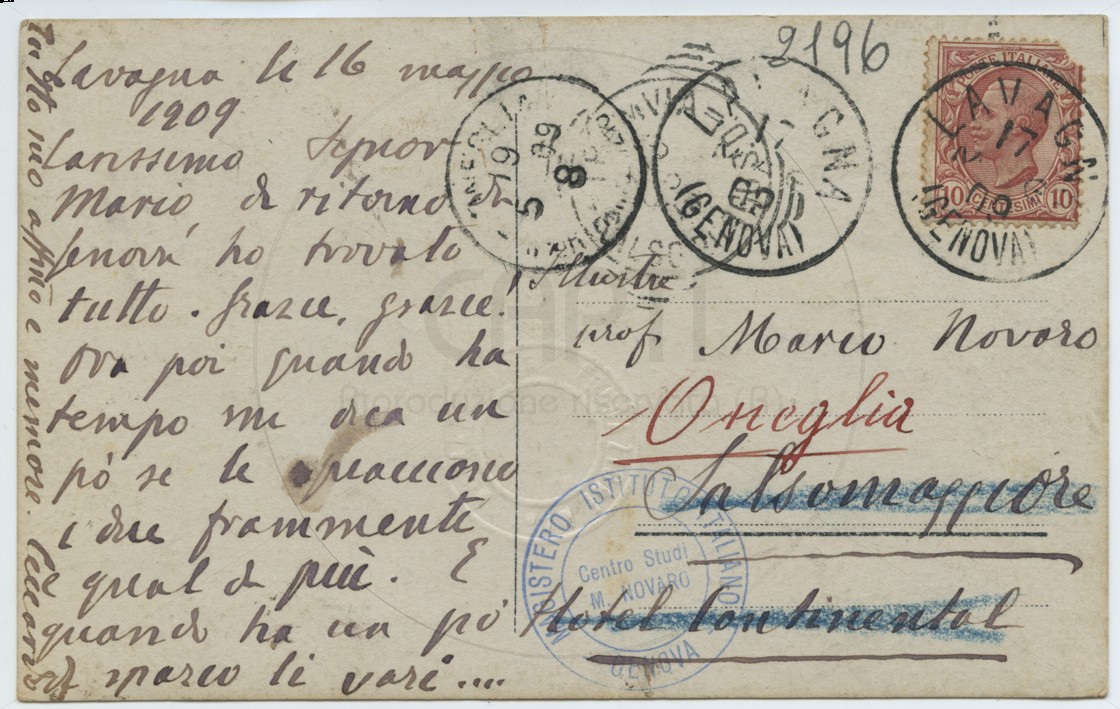 2196
Lavagna li 16 maggio
1909
Carissimo Signor
Mario, di ritorno di
Genova ho trovato
tutto. Grazie, grazie.
Ora poi quando ha
tempo mi dica un
pò se le piacciono
i due frammenti
qual di più. E
quando ha un pò
di spazio li vari ....
Tutto suo affmo e memore.
Illustre
prof Mario Novaro
Oneglia
Salsomaggiore
Hotel Continental
POSTE ITALIANE
10 CENTESIMI 10
LAVAGNA
17
09
(GENOVA)
LAVAGNA
17
09
(GENOVA)
19 5 09
8
MAGISTERO ISTITUTO ITALIANO
Centro Studi
M. NOVARO
GENOVA
CAPTI
Riproduzione riservata (R)